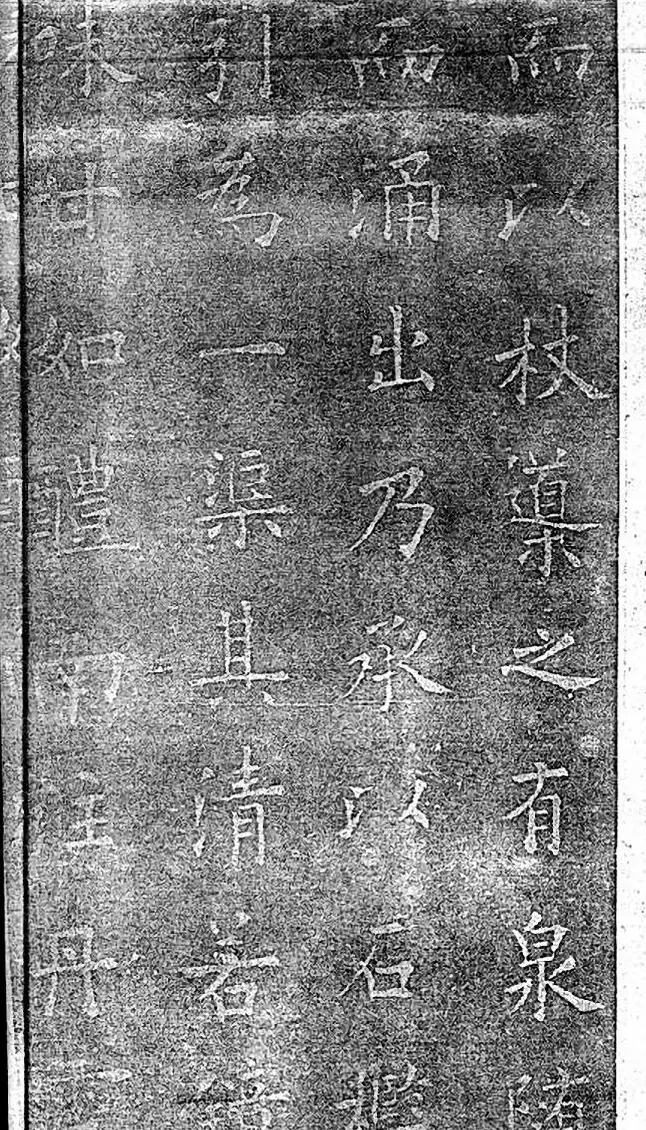 而以杖導之有泉隨
而涌出乃承以石檻
引為一渠其清若鏡
味甘如醴南注丹